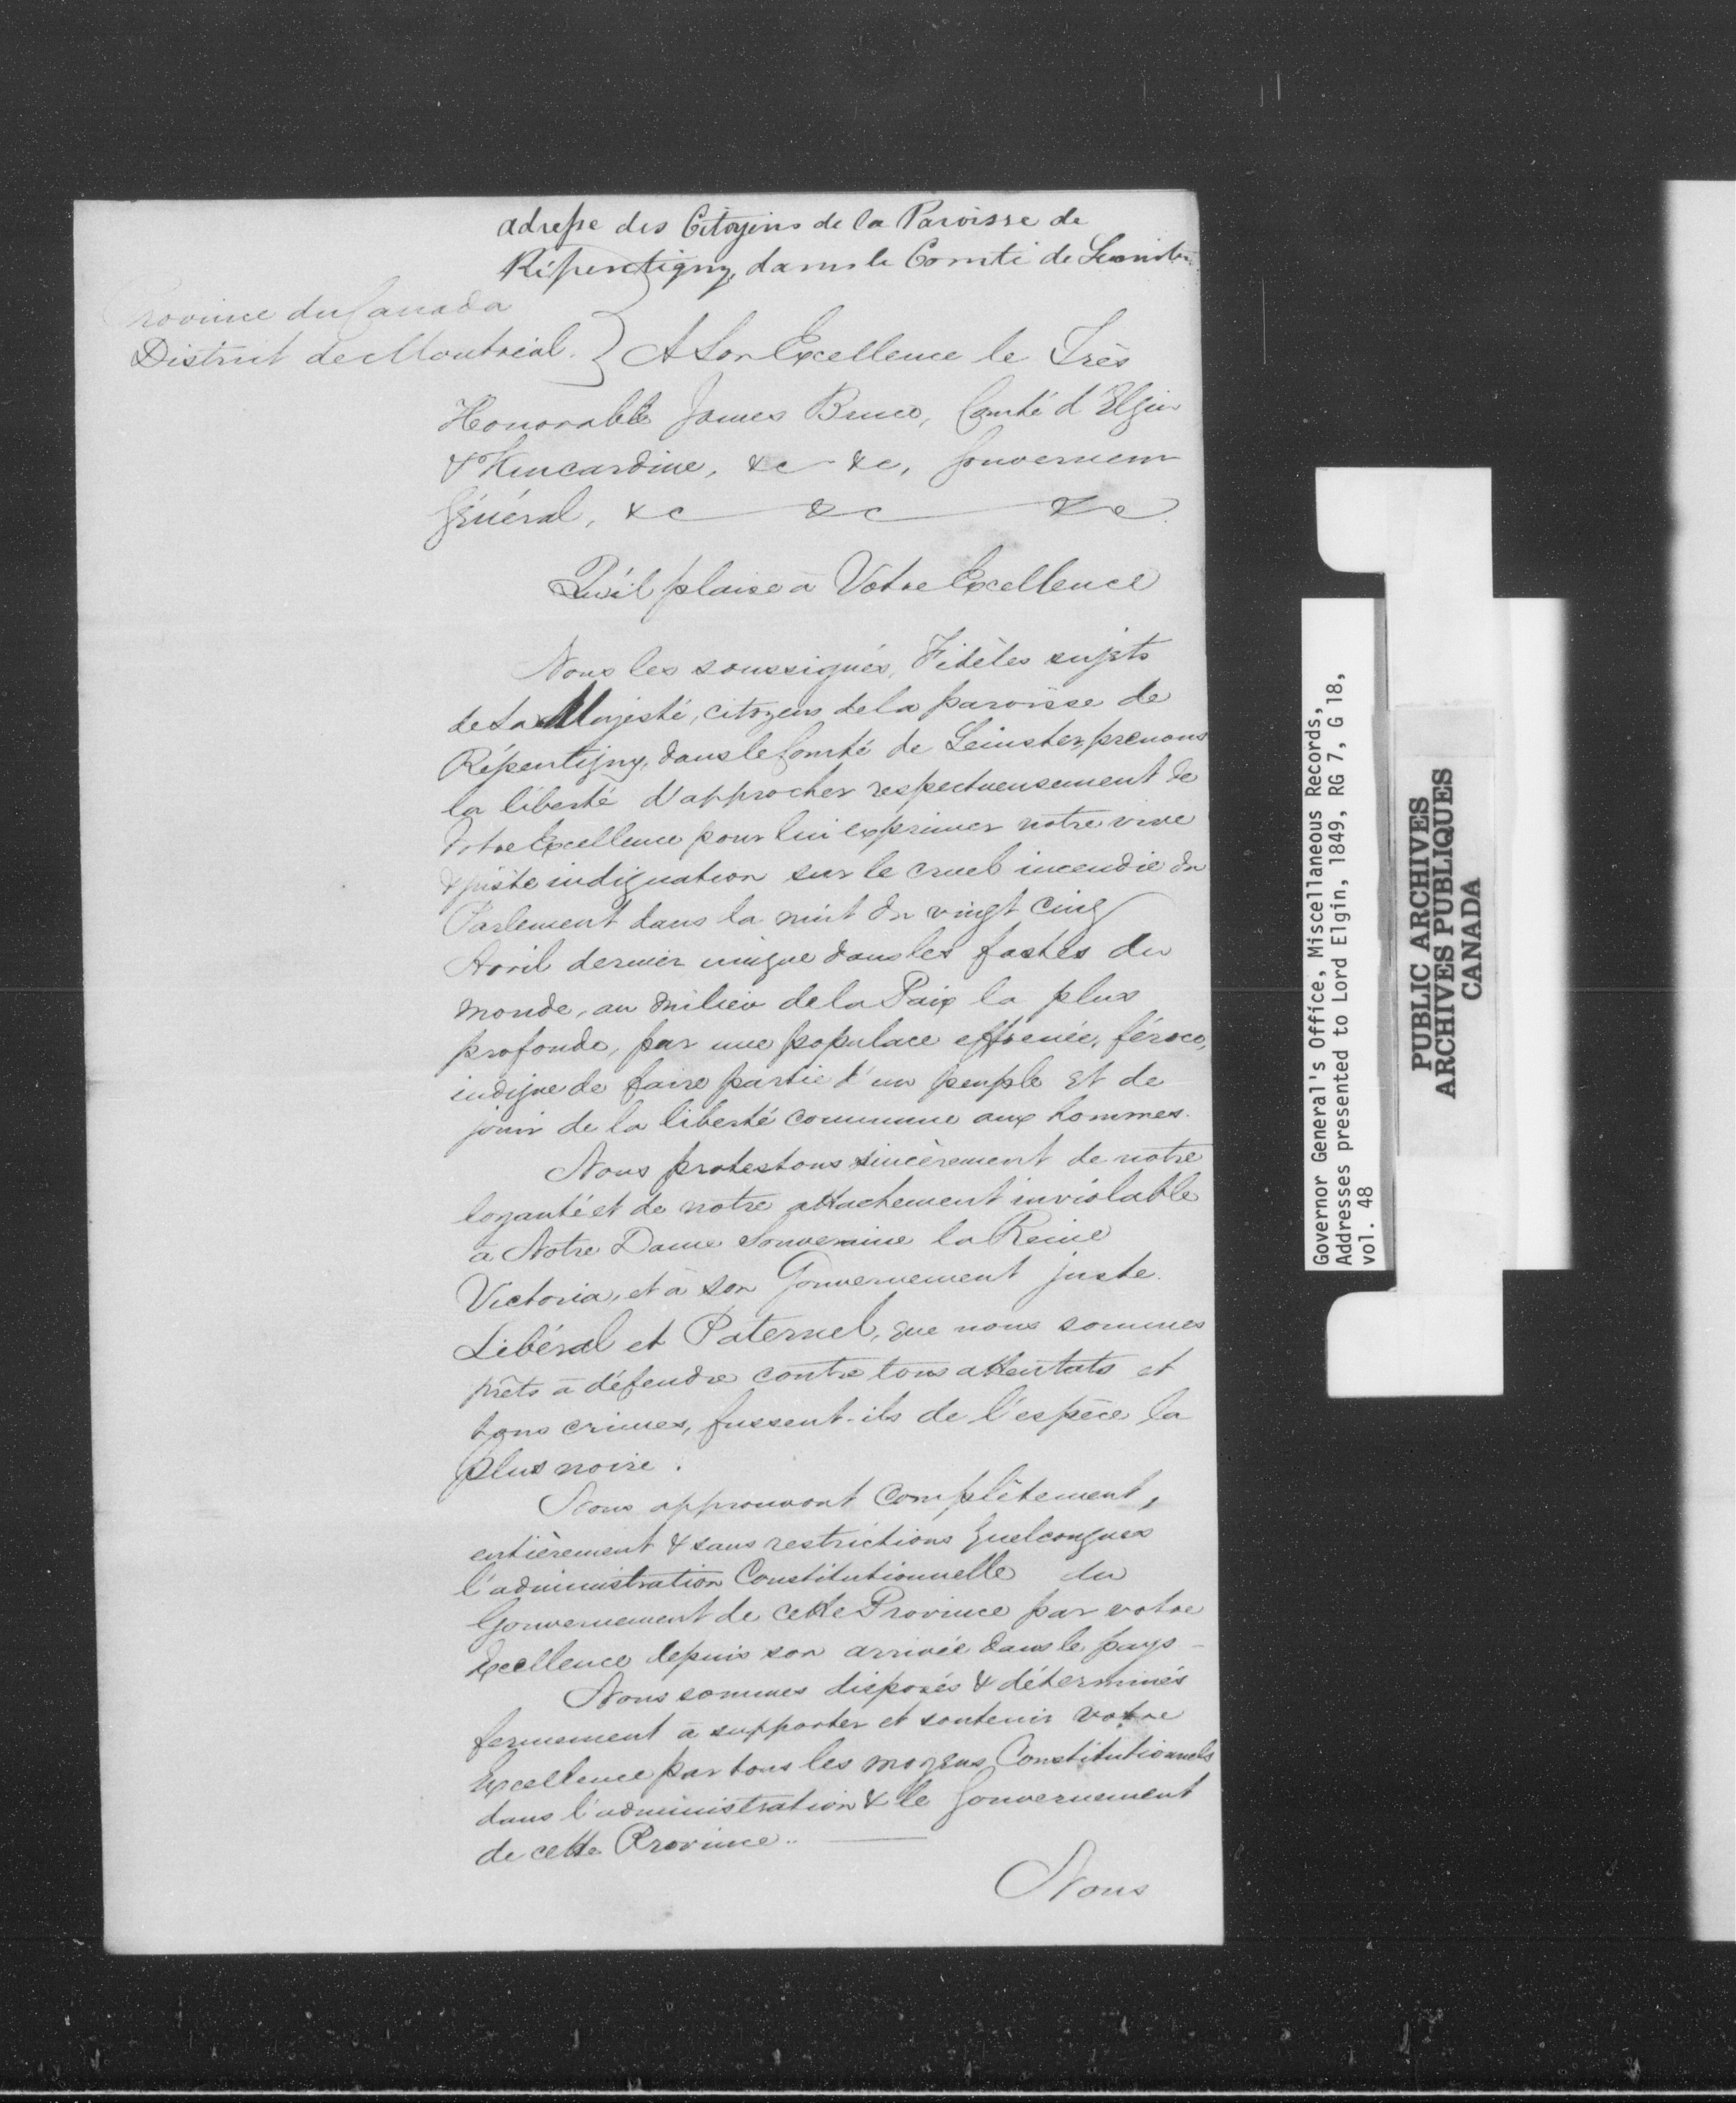 adresse des Citoyens de la Paroisse de
Répentigny, dans le Comté de Leinster
Province du Canada
District de Montréal. } A Son Excellence le Très
Honorable James Bruce, Comté d'Elgin
& Kincardine, &c &c, Gouverneur
Général, &c &c &c
Qu'il plaise à Votre Excellence
Nous les soussignés, Fidèles sujets
de Sa Majesté, citoyens de la paroisse de
Répentigny, dans le Comté de Leinster, prenons
la liberté d'approcher respectueusement de
Votre Excellence pour lui exprimer notre vive
& juste indignation sur le cruel incendie du
Parlement dans la nuit du vingt cinq
Avril dernier unique dans les fastes du
monde, au milieu de la Paix la plus
profonde, par une populace effrenée, féroce,
indigne de faire partie d'un peuple et de
jouir de la liberté commune aux hommes.
Nous protestons sincèrement de notre
loyauté et de notre attachement inviolable
à Notre Dame Souveraine la Reine
Victoria, et à son Gouvernement juste.
Libéral et Paternel, que nous sommes
prêts à défendre contre tous attentats et
tous crimes, fussent-ils de l'espèce la
plus noire.
Nous approuvont complètement,
entièrement & sans restrictions quelconques
l'administration Constitutionnelle du
Gouvernement de cette Province par votre
Excellence depuis son arrivée dans le pays -
Nous sommes disposés & déterminés
fermement à supporter et soutenir votre
Excellence par tous les moyens Constitutionnels
dans l'administration & le Gouvernement
de cette Province..
Nous
Governor General's Office, Miscellaneous Records,
Addresses presented to Lord Elgin, 1849, RG 7, G 18,
vol. 48
PUBLIC ARCHIVES
ARCHIVES PUBLIQUES
CANADA